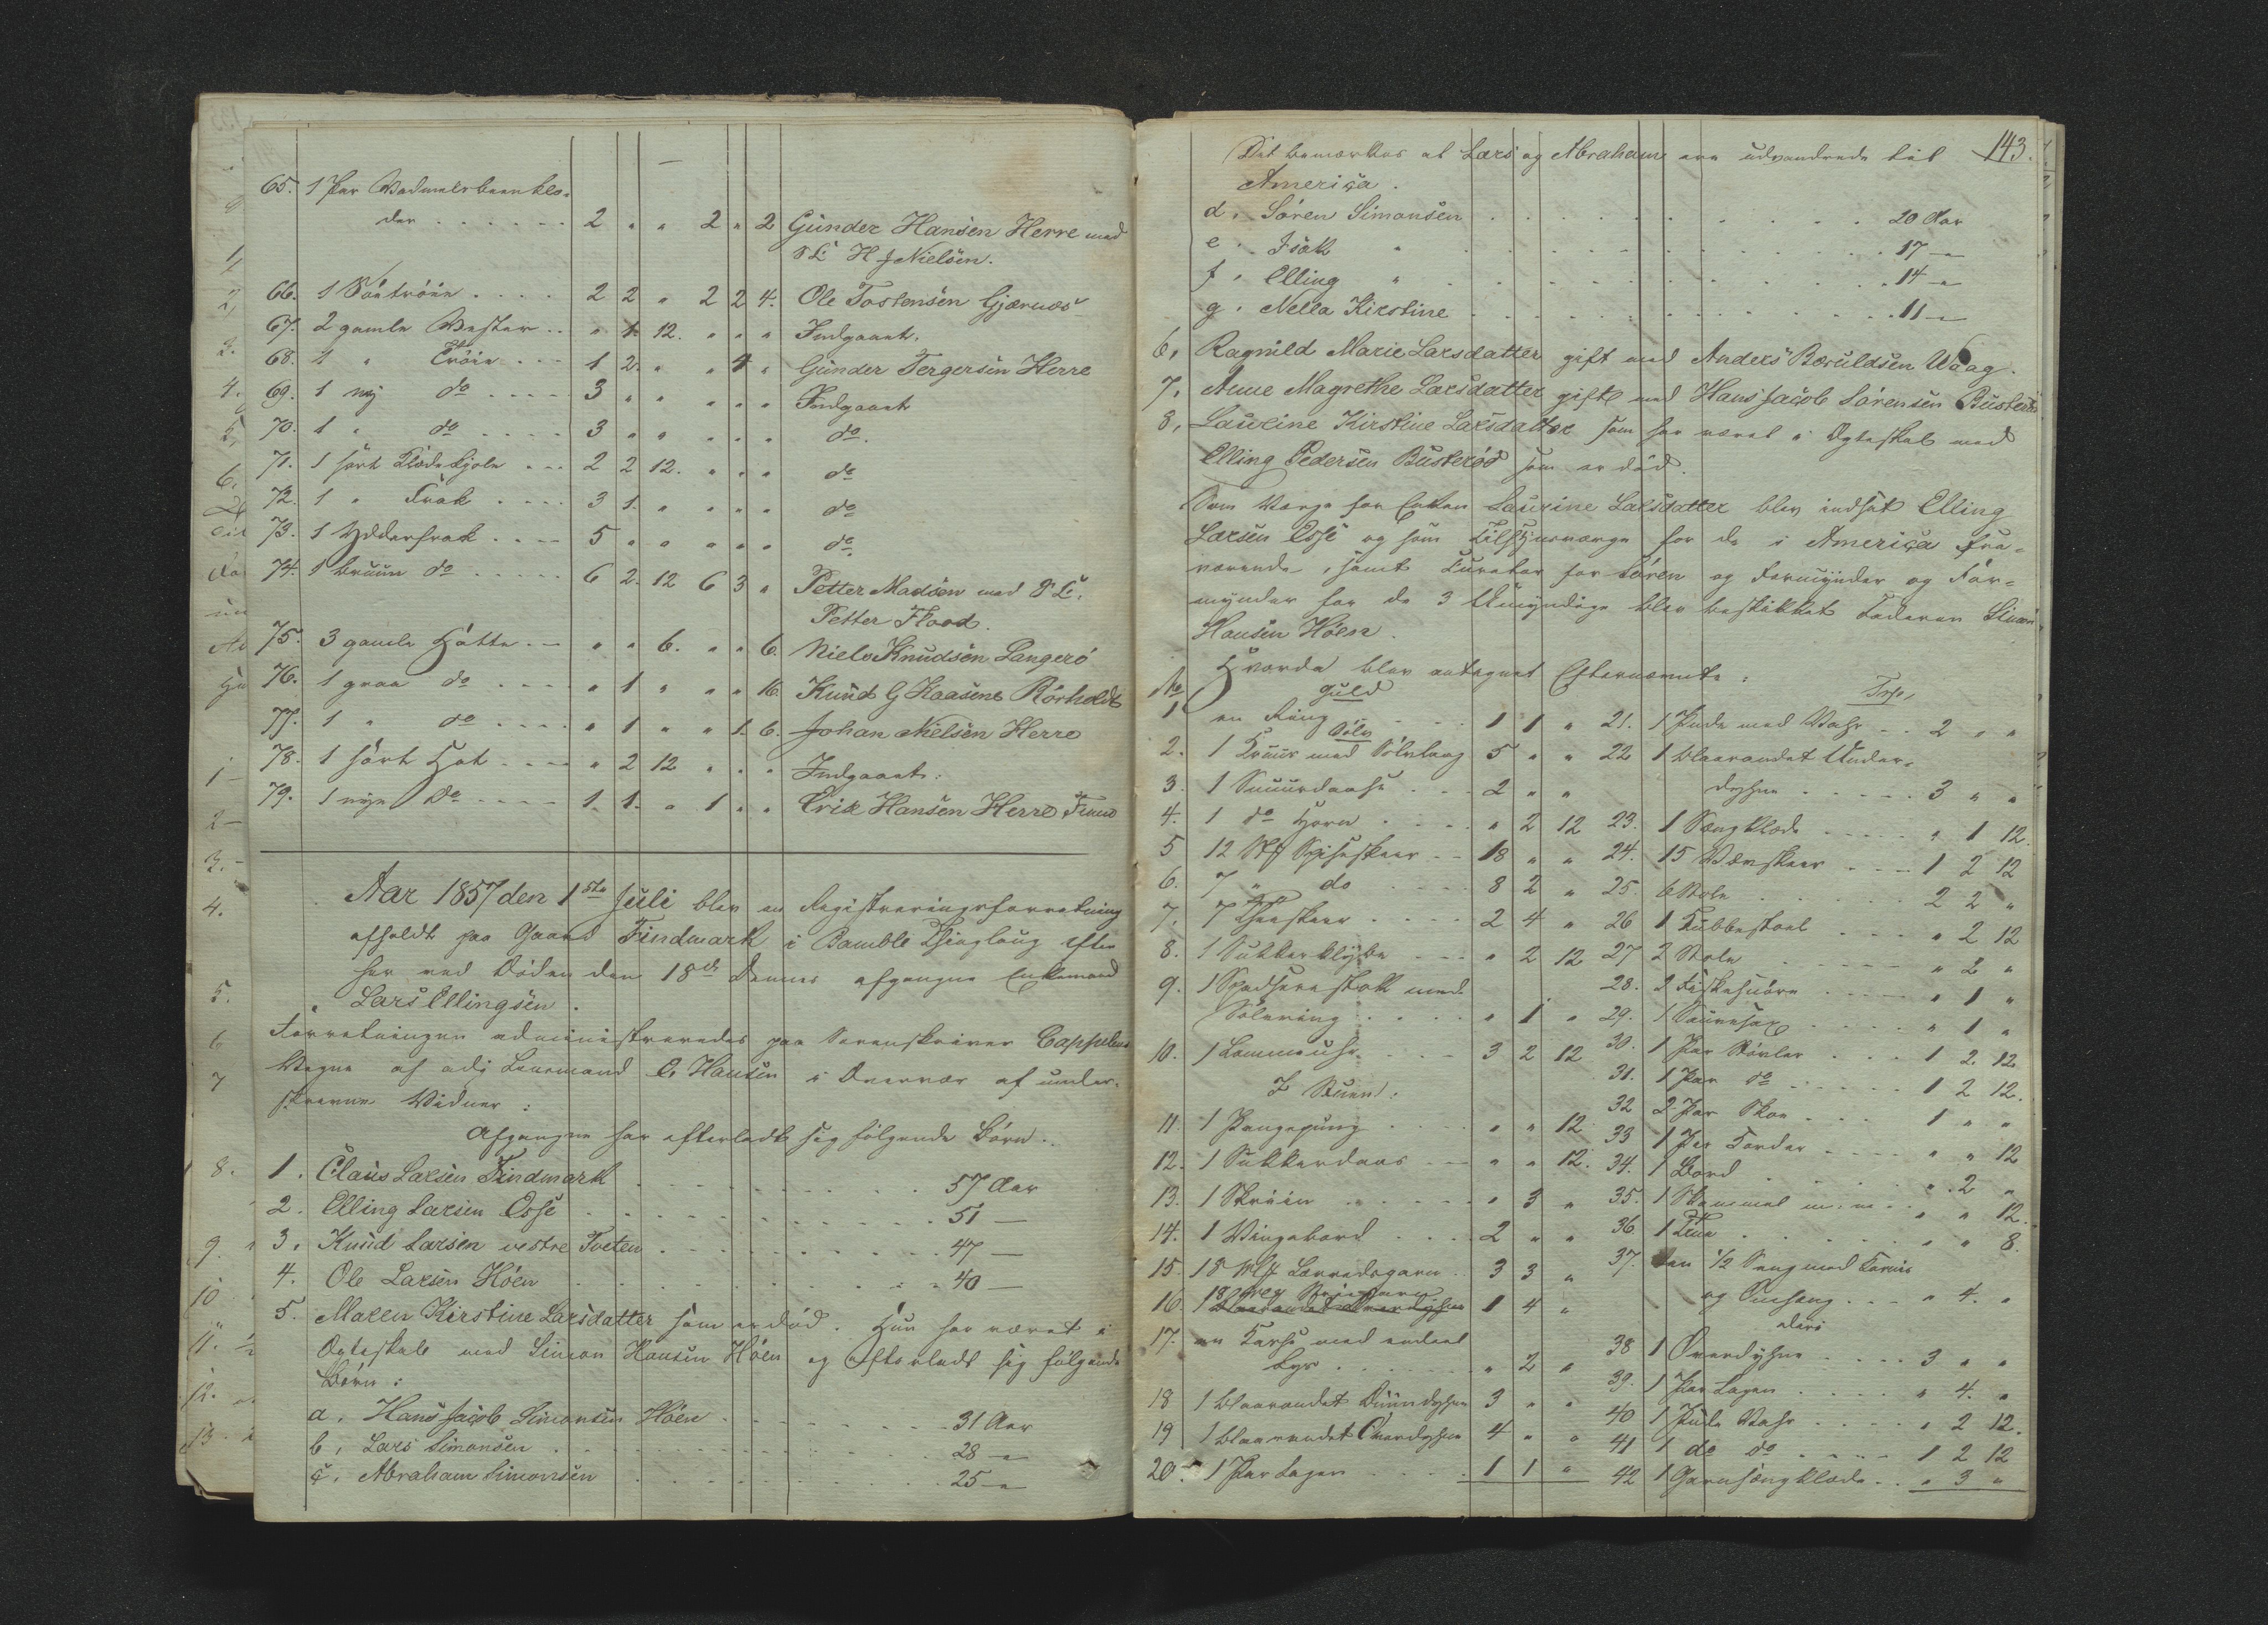 65. 1 Par Vadmelsbeenklæ-
der . . . . . . 2 " " 2 " 2 Gunder Hansen Herre med
S. C. H J Nielsen.
66. 1 . . . . 2 2 " 2 2 4. Ole Tostensen Gjærnæs
67. 2 gamle Vester . . " 1. 12. " " " Indgaaet.
68. 1 " Trøie . . . 1 2. " " 4 " Gunder Tergersen Herre
69. 1 ny do . . . . 3 " " " " " Indgaaet
70. 1 " do . . . . 3 " " " " " do.
71. 1 sort Klædekjole . . . 2 2 12. " " " do
72. 1 " Frak . . . . 3 1. " " " " do
73. 1 Yderfrak . . . . 5 " " " " " do
74. 1 bruun do . . . . . 6 2. 12 6 3 " Petter Madsen med S. C.
Petter Flood.
75. 3 gamle Hatte . . . " " 6. " " 6. Niels Knudsen Langerö
76. 1 graa do . . . . " 1 " " " 16. Knud G Haasens Rörholdt
77. 1 " do . . . . " 1 " " 1. 6. Johan Nielsen Herre
78. 1 sort Hat . . . . " 2 12 " " " Indgaaet.
79. 1 nye Do . . . . 1. 1. " 1 " " Erik Hansen Herre
Aar 1857 den 1ste Juli blev en Registreringsforretning
afholdt paa Gaard Findmark i Bamble Thinglaug efter
her ved Døden den 18de Dennes afgangne Enkemand
Lars Ellingsen.
Forretningen administreredes paa Sorenskriver Cappelens
Vegne af adj Lensmand C. Hansen i Overvær af under-
skrevne Vidner:
Afgangne har efterladt sig følgende Børn.
1. Claus Larsen Findmark . . . . 57 Aar
2. Elling Larsen Osse . . . . 51 —
3. Knud Larsen vestre Tveten . . . . 47 —
4. Ole Larsen Höen . . . . 40 —
5. Maren Kirstine Larsdatter som er død. Hun har været i
Ægteskab med Simon Hansen Höen og efterladt sig følgende
Børn:
a. Hans Jacob Simonsen Höen . . . . 31 Aar
b. Lars Simonsen . . . . 28 —
c. Abraham Simonsen . . . . 25 —
143.
Det bemærkes at Lars og Abraham ere udvandrede til
America.
d. Sören Simonsen . . . . 20 Aar
e. Isak " . . . . 17 —
f. Elling " . . . . 14 —
g. Nella Kirstine . . . . 11 —
6. Ragnild Marie Larsdatter gift med Anders Bæruldsen Waag.
7. Anne Magrethe Larsdatter gift med Hans Jacob Sörensen
8. Laurine Kirstine Larsdatter som har været i Ægteskab med
Elling Pedersen Busteröd som er død.
Som Værge for Enken Laurine Larsdatter blev indsat Elling
Larsen Osse og som Tilsynsværge for de i America fra-
værende, samt Curator for Sören og Formynder og For-
mynder for de 3 Umyndige blev beskikket Faderen Simon
Hansen Höen.
Hvorda blev antegnet Efternævnte:
No Guld
1 en Ring . . . . 1 1 "
Sølv
2. 1 Kruus med Sølvlaag 5 " "
3. 1 Snuusdaase . . . 2 " "
4. 1 do Horn . . . . " 2 12
5 12 Stk Spiseskeer . . 18 " "
6. 7 " do . . . . 8 2 "
7. 7 Theeskeer . . . . 2 4 "
8. 1 Sukkerklype . . . " 2 12
9. 1 Spadserestok med
Sølvring . . . . " 1 "
10. 1 Lommeuhr . . . 3 2 12
I Stuen:
11. 1 Pengepung . . . " " 12
12. 1 Sukkerdaas . . . " " 12.
13. 1 Skriin . . . . . " 3 "
14. 1 Vingebord . . . . 2 " "
15. 18 Lærredsgarn . . 3 3 "
16. 1 4 "
17. en med endeel
Lys . . . . . " 2 "
18 1 blaarandet Duundyne 3 " "
19 1 blaarandet Overdyne 4 " "
20. 1 Par Lagen . . . . 1 1 "
Trp.
21. 1 Pude med Vahr . . 2 " "
22 1 blaarandet Under-
dyne . . . . . 3 " "
23. 1 Sengklæde . . . . " 1 12.
24. 15 . . . 1 2 12
25. 6 Stole . . . . . 2 2 "
26 1 Kubbestoel . . . " 2 12
27 2 Stole . . . . . " 2 "
28. 2 Fiskesnöre . . . . " 1 "
29. 1 Sauesax . . . . " 1 "
30. 1 Par Støvler . . . 1 2. 12
31. 1 Par do . . . . . 1 2 12.
32 2 Par Skoe . . . 1 " "
33 1 Par . . . . " " 12
34. 1 Bord . . . . . " 2 "
35. 1 m: m: . . " " 12.
36. 1 Tine . . . . . " " 8.
37. en 1/2 Seng med
og Omhæng . . . " 4. "
38 1 Overdyne . . . . 3 " "
39. 1 Par Lagen . . . . " 4. "
40 1 Pude Vahr . . . . " 2 12.
41 1 do do . . . . . 1 2 12
42 1 Garnsengklæde . . " 3 "